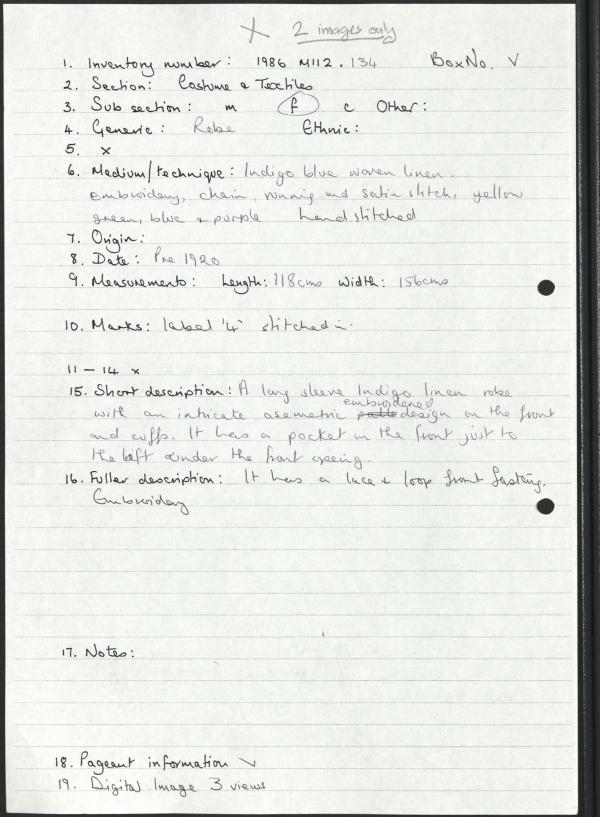 X 2 images only
1. Inventory number: 1986 M112.134 Box No. V
2. Section: Costume & Textiles
3. Sub section: m f c Other:
4. Generic: Robe Ethnic:
5. x
6. Medium/technique: Indigo blue woven linen.
Embroidery, chain, running and satin stitch, yellow
green, blue & purple hand stitched
7. Origin:
8. Date: Pre 1920
9. Measurements: Length: 118cms Width: 156cms
10. Marks: label '4' stitched in.
11 - 14 x
15. Short description: A long sleeve Indigo linen robe
with an intricate asemetric embroidered design on the front
and cuffs. It has a pocket in the front just to
the left & under the front opening.
16. Fuller description: It has a lace & loop front fasting.
Embroidery
17. Notes:
18. Pageant information
19. Digital Image 3 views